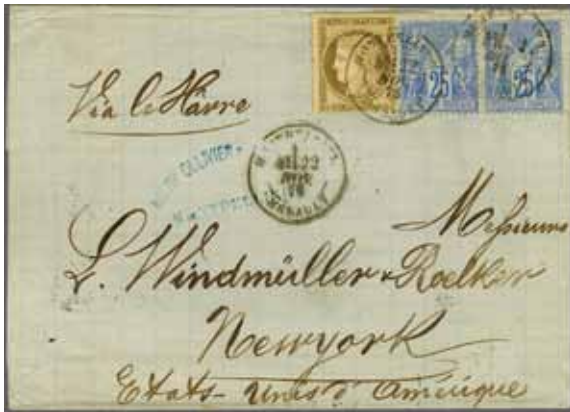 Via le Hâvre
25 25
OLLIVIER
HERAULT
Messieurs
L. Windmüller & Roelker
Newyork
Etats-Unis d'Amérique